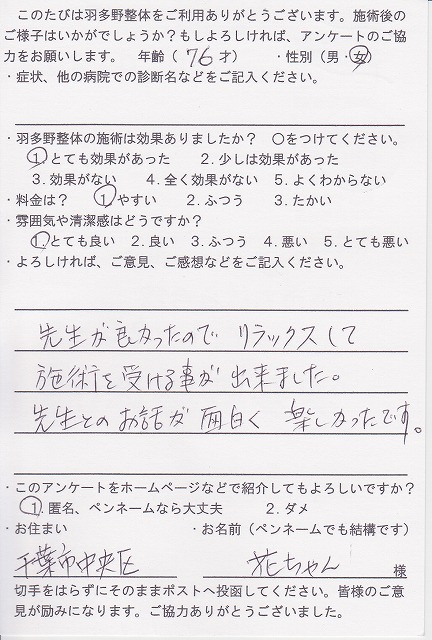 このたびは羽多野整体をご利用ありがとうございます。施術後の
ご様子はいかがでしょうか？もしよろしければ、アンケートのご協
力をお願いします。 年齢（76才） ・性別（男・女）
・症状、他の病院での診断名などをご記入ください。
・羽多野整体の施術は効果ありましたか？ 〇をつけてください。
1 とても効果があった 2．少しは効果があった
3．効果がない 4．全く効果がない 5．よくわからない
・料金は？ 1 やすい 2．ふつう 3．たかい
・雰囲気や清潔感はどうですか？
1．とても良い 2．良い 3．ふつう 4．悪い 5．とても悪い
・よろしければ、ご意見、ご感想などをご記入ください。
先生が良かったので リラックスして
施術を受ける事が出来ました。
先生とのお話が面白く 楽しかったです。
・このアンケートをホームページなどで紹介してもよろしいですか？
1．匿名、ペンネームなら大丈夫 2．ダメ
・お住まい ・お名前（ペンネームでも結構です）
千葉市中央区 花ちゃん 様
切手をはらずにそのままポストへ投函してください。皆様のご意
見が励みになります。ご協力ありがとうございました。